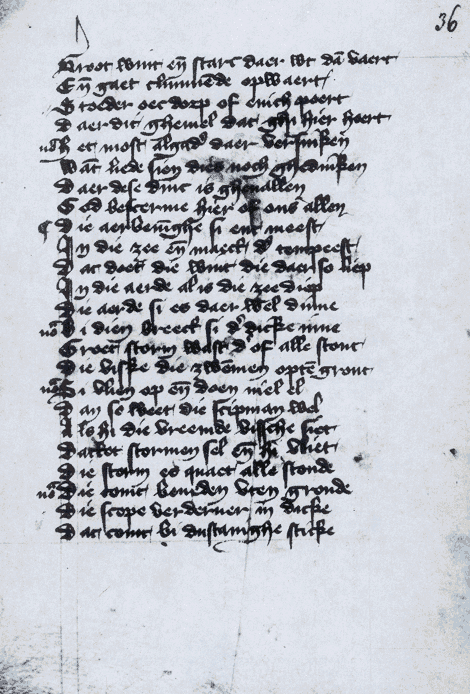 36
Groot wint eñ starc daer wt dā vaert
Eñ gaet climmēde opwaert
Stoeder oec dorp of enich poert
Daer dit ghewel dat ghi hier hoert
Het most algad' daer versinkē
Wāt liede sien dies noch ghedinkē
Daer dese dinc is ghevallen
God bescerme hier of ons allen
Die aerbevinghe si ent meest
In die zee eñ maect d' tempeest
Dat doet die wint die daer so liep
In die aerde al is die zee diep
Die aerde si es daer wel dinne
Bi dien breect si d' dicke inne
Groet storm wast d' of alle stont
Die viske die zwemen optē gront
Si vlien op eñ doen niel el
Dan so weet die scipman wel
Als hi die vreemde vissche siet
Dattet stormen sel eñ hi vliet
Die storm es quaet alle stonde
Die comt beneden vten gronde
Die scepe verderver in dicke
Dat comt bi dustanighe sticke